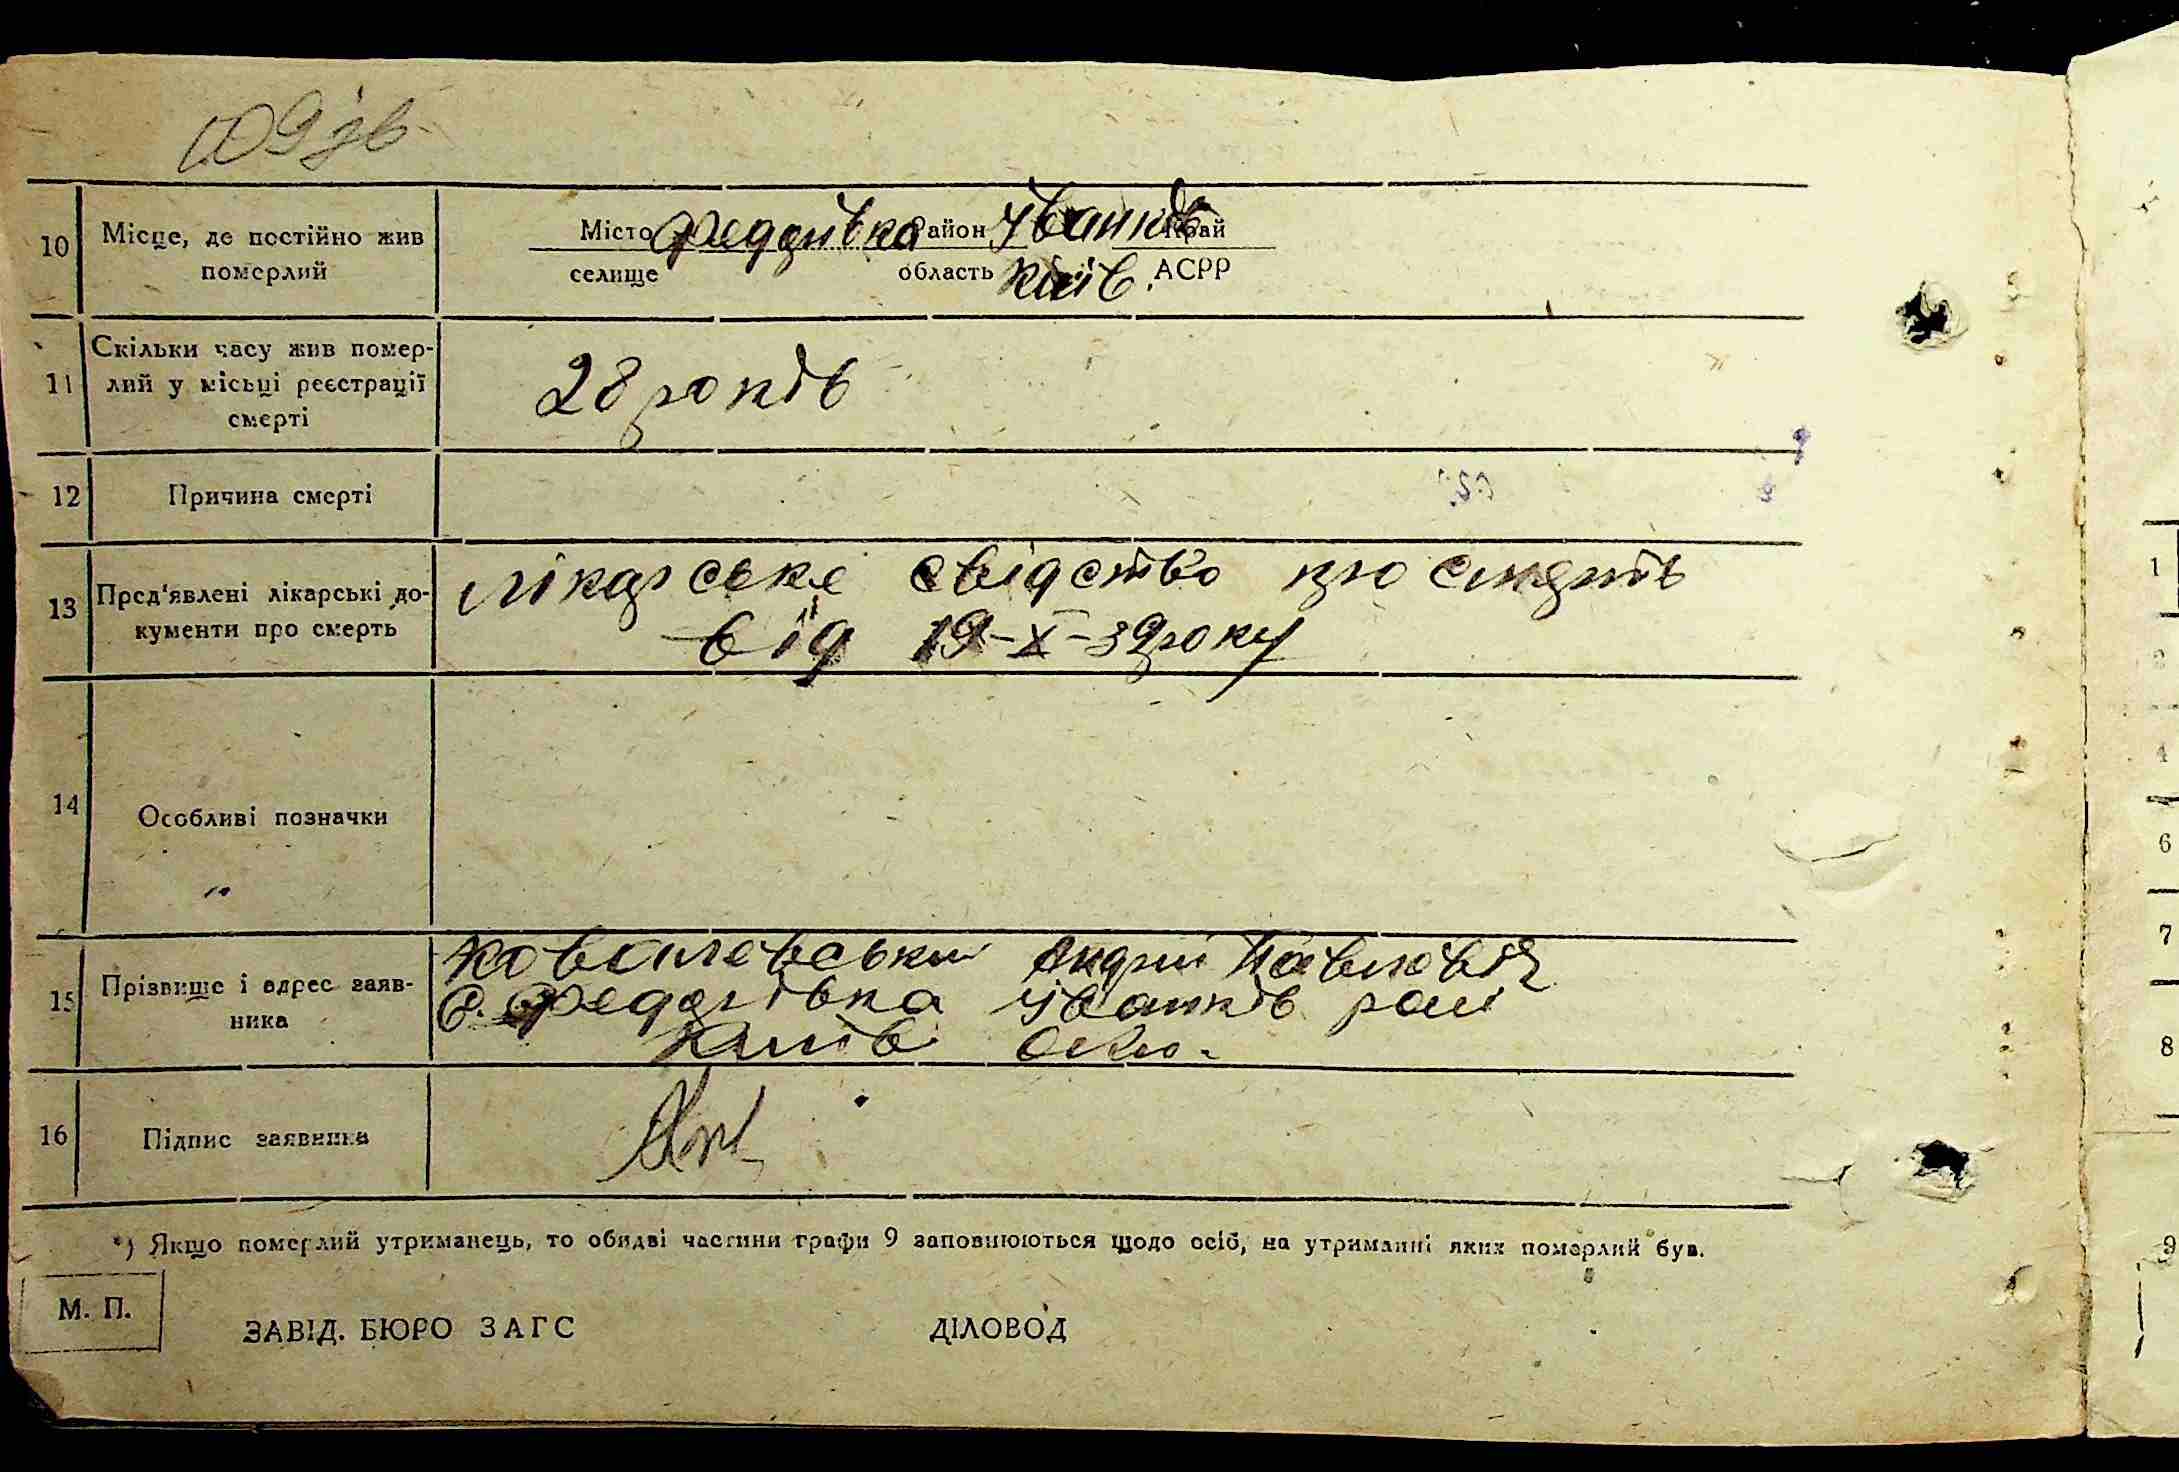 109 зв
10 Місце, де постійно жив померлий
Місто Феддрівка Район Іванків Край
селище область Київ. АСРР
11 Скільки часу жив помер-
лий у місьці реєстрації
смерті
28 років
12 Причина смерті
13 Пред'явлені лікарські до-
кументи про смерть
лікарське свідство про смерть
від 19-X-39 року
14 Особливі позначки
15 Прізвище і адрес заяв-
ника
Ковалевський Андрій Павловіч
с. Феддрівка Іванків рай
Київ обл.
16 Підпис заявника
*) Якщо померлий утриманець, то обидві частини графи 9 заповнюються щодо осіб, на утриманні яких померлий був.
М. П.
ЗАВІД. БЮРО ЗАГС ДІЛОВОД
1
2
4
6
7
8
9